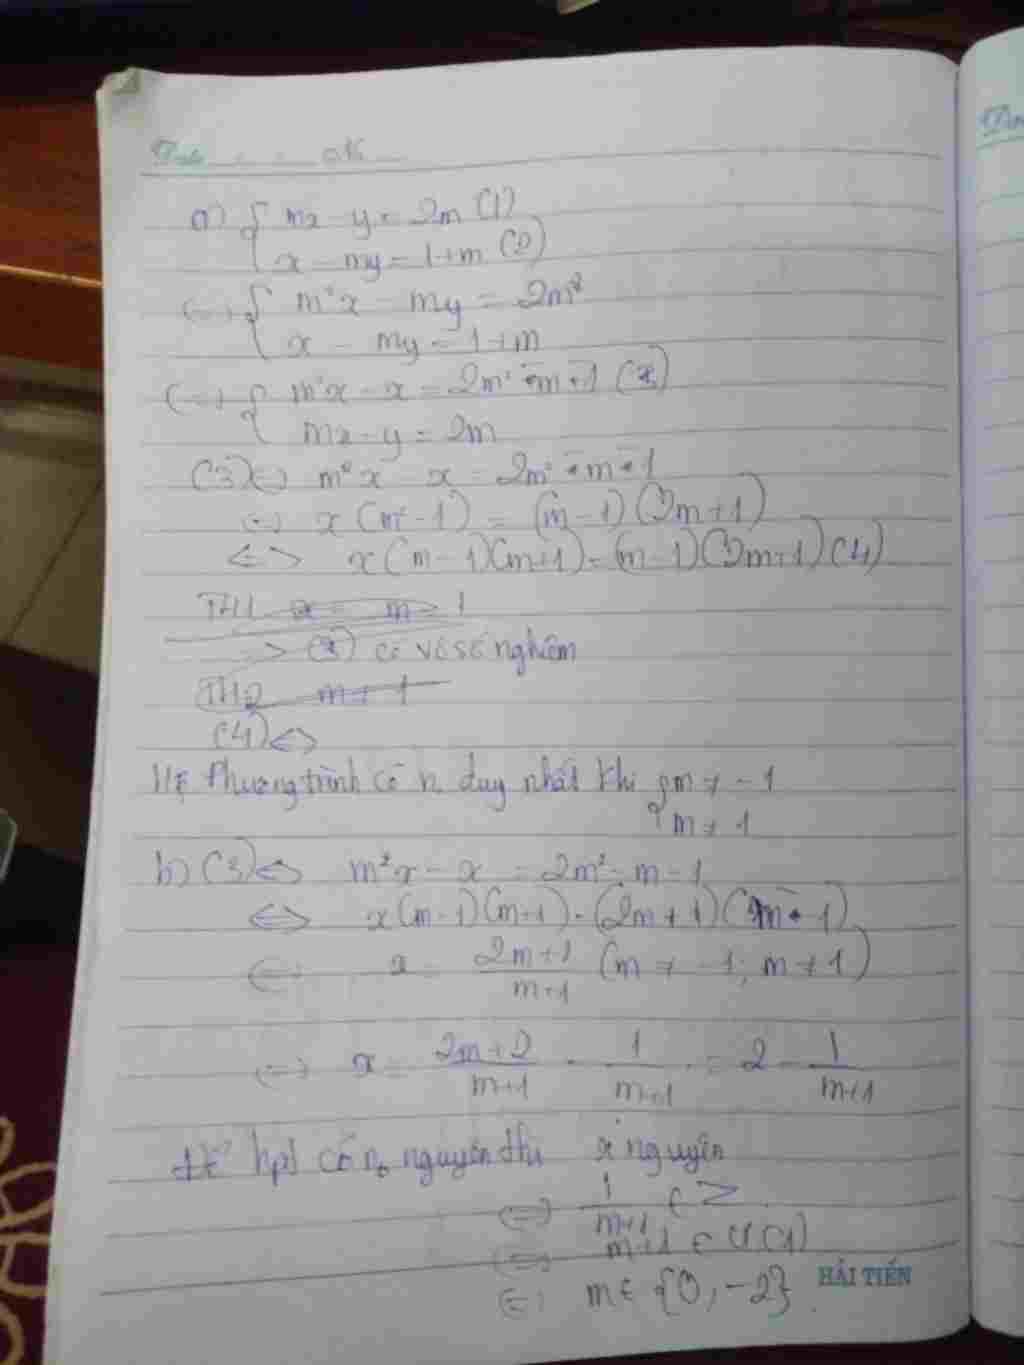 a) { mx - y = 2m (1)
x - my = 1+m (2)
(=) { m²x - my = 2m²
x - my = 1+m
(=) { m²x - x = 2m² - m - 1 (3)
mx - y = 2m
(3) (=) m²x - x = 2m² - m - 1
(=) x(m² - 1) = (m - 1)(2m + 1)
<=> x(m - 1)(m+1) = (m - 1)(2m+1) (4)
TH1 m = 1
=> (3) có vô số nghiệm
TH2 m ≠ 1
(4) <=>
Hệ phương trình có n0 duy nhất khi { m ≠ -1
m ≠ 1
b) (3) <=> m²x - x = 2m² - m - 1
<=> x(m-1)(m+1) = (2m+1)(m - 1)
(=) x = 2m+1 / m+1 (m ≠ -1; m ≠ 1)
(=) x = 2m+2 / m+1 - 1 / m+1 = 2 - 1 / m+1
Để hpt có n0 nguyên thì x nguyên
(=) 1 / m+1 ∈ Z
(=) m+1 ∈ Ư(1)
(=) m ∈ {0, -2}
HẢI TIẾN